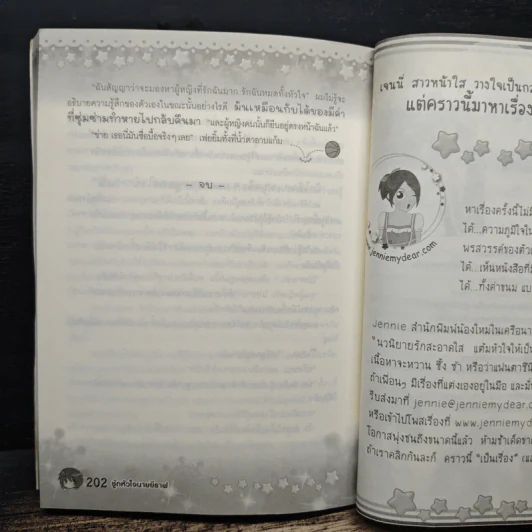 "ฉันสัญญาว่าจะมองหาผู้หญิงที่รักฉันมาก รักฉันหมดทั้งหัวใจ" ผมไม่รู้จะ
อธิบายความรู้สึกของตัวเองในขณะนั้นอย่างไรดี มันเหมือนกับได้ของมีค่า
ที่ซุ่มซ่ามทำหายไปกลับคืนมา "และผู้หญิงคนนั้นก็ยืนอยู่ตรงหน้าฉันแล้ว"
"ซ่าย เธอนี่มันซื่อบื้อจริงๆ เลย" เฟยยิ้มทั้งที่น้ำตาอาบแก้ม
- จบ -
202 จู่กหัวใจนายยีราฟ
เจนนี่ สาวหน้าใส วางใจเป็น
แต่คราวนี้มาหาเรื่อง
www.jenniemydear.com
หาเรื่องครั้งนี้ไม่มี
ได้...ความภูมิใจใน
พรสวรรค์ของตัวเ
ได้...เห็นหนังสือที่
ได้...ทั้งค่าขนม แบ
Jennie สำนักพิมพ์น้องใหม่ในเครือนา
"นวนิยายรักสะอาดใส แต้มหัวใจให้เป็
เนื้อหาจะหวาน ซึ้ง ฮา หรือว่าแฟนตาซีนิ
ถ้าเพื่อนๆ มีเรื่องที่แต่งเองอยู่ในมือ และมั่
รีบส่งมาที่ jennie@jenniemydear.c
หรือเข้าไปโพสเรื่องที่ www.jenniemyd
โอกาสพุ่งชนถึงขนาดนี้แล้ว ห้ามช้าเด็ดขา
ถ้าเราคลิกกันละก็ คราวนี้ "เป็นเรื่อง" (แ